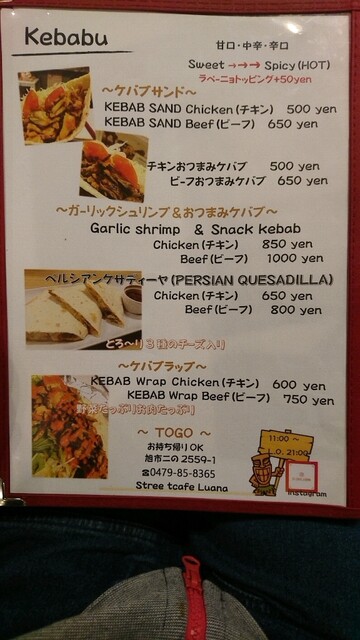 Kebabu
甘口・中辛・辛口
Sweet →→→ Spicy (HOT)
ラペーニョトッピング+50yen
〜ケバブサンド〜
KEBAB SAND Chicken (チキン) 500 yen
KEBAB SAND Beef (ビーフ) 650 yen
チキンおつまみケバブ 500 yen
ビーフおつまみケバブ 650 yen
〜ガーリックシュリンプ&おつまみケバブ〜
Garlic shrimp & Snack kebab
Chicken (チキン) 850 yen
Beef (ビーフ) 1000 yen
ペルシアンケサディーヤ (PERSIAN QUESADILLA)
Chicken (チキン) 650 yen
Beef (ビーフ) 800 yen
とろ〜り3種のチーズ入り
〜ケバブラップ〜
KEBAB Wrap Chicken (チキン) 600 yen
KEBAB Wrap Beef (ビーフ) 750 yen
野菜たっぷりお肉たっぷり
〜 TOGO 〜
お持ち帰りOK
旭市二の2559-1
☎0479-85-8365
Stree tcafe Luana
11:00 〜
L.O. 21:00
Instagram